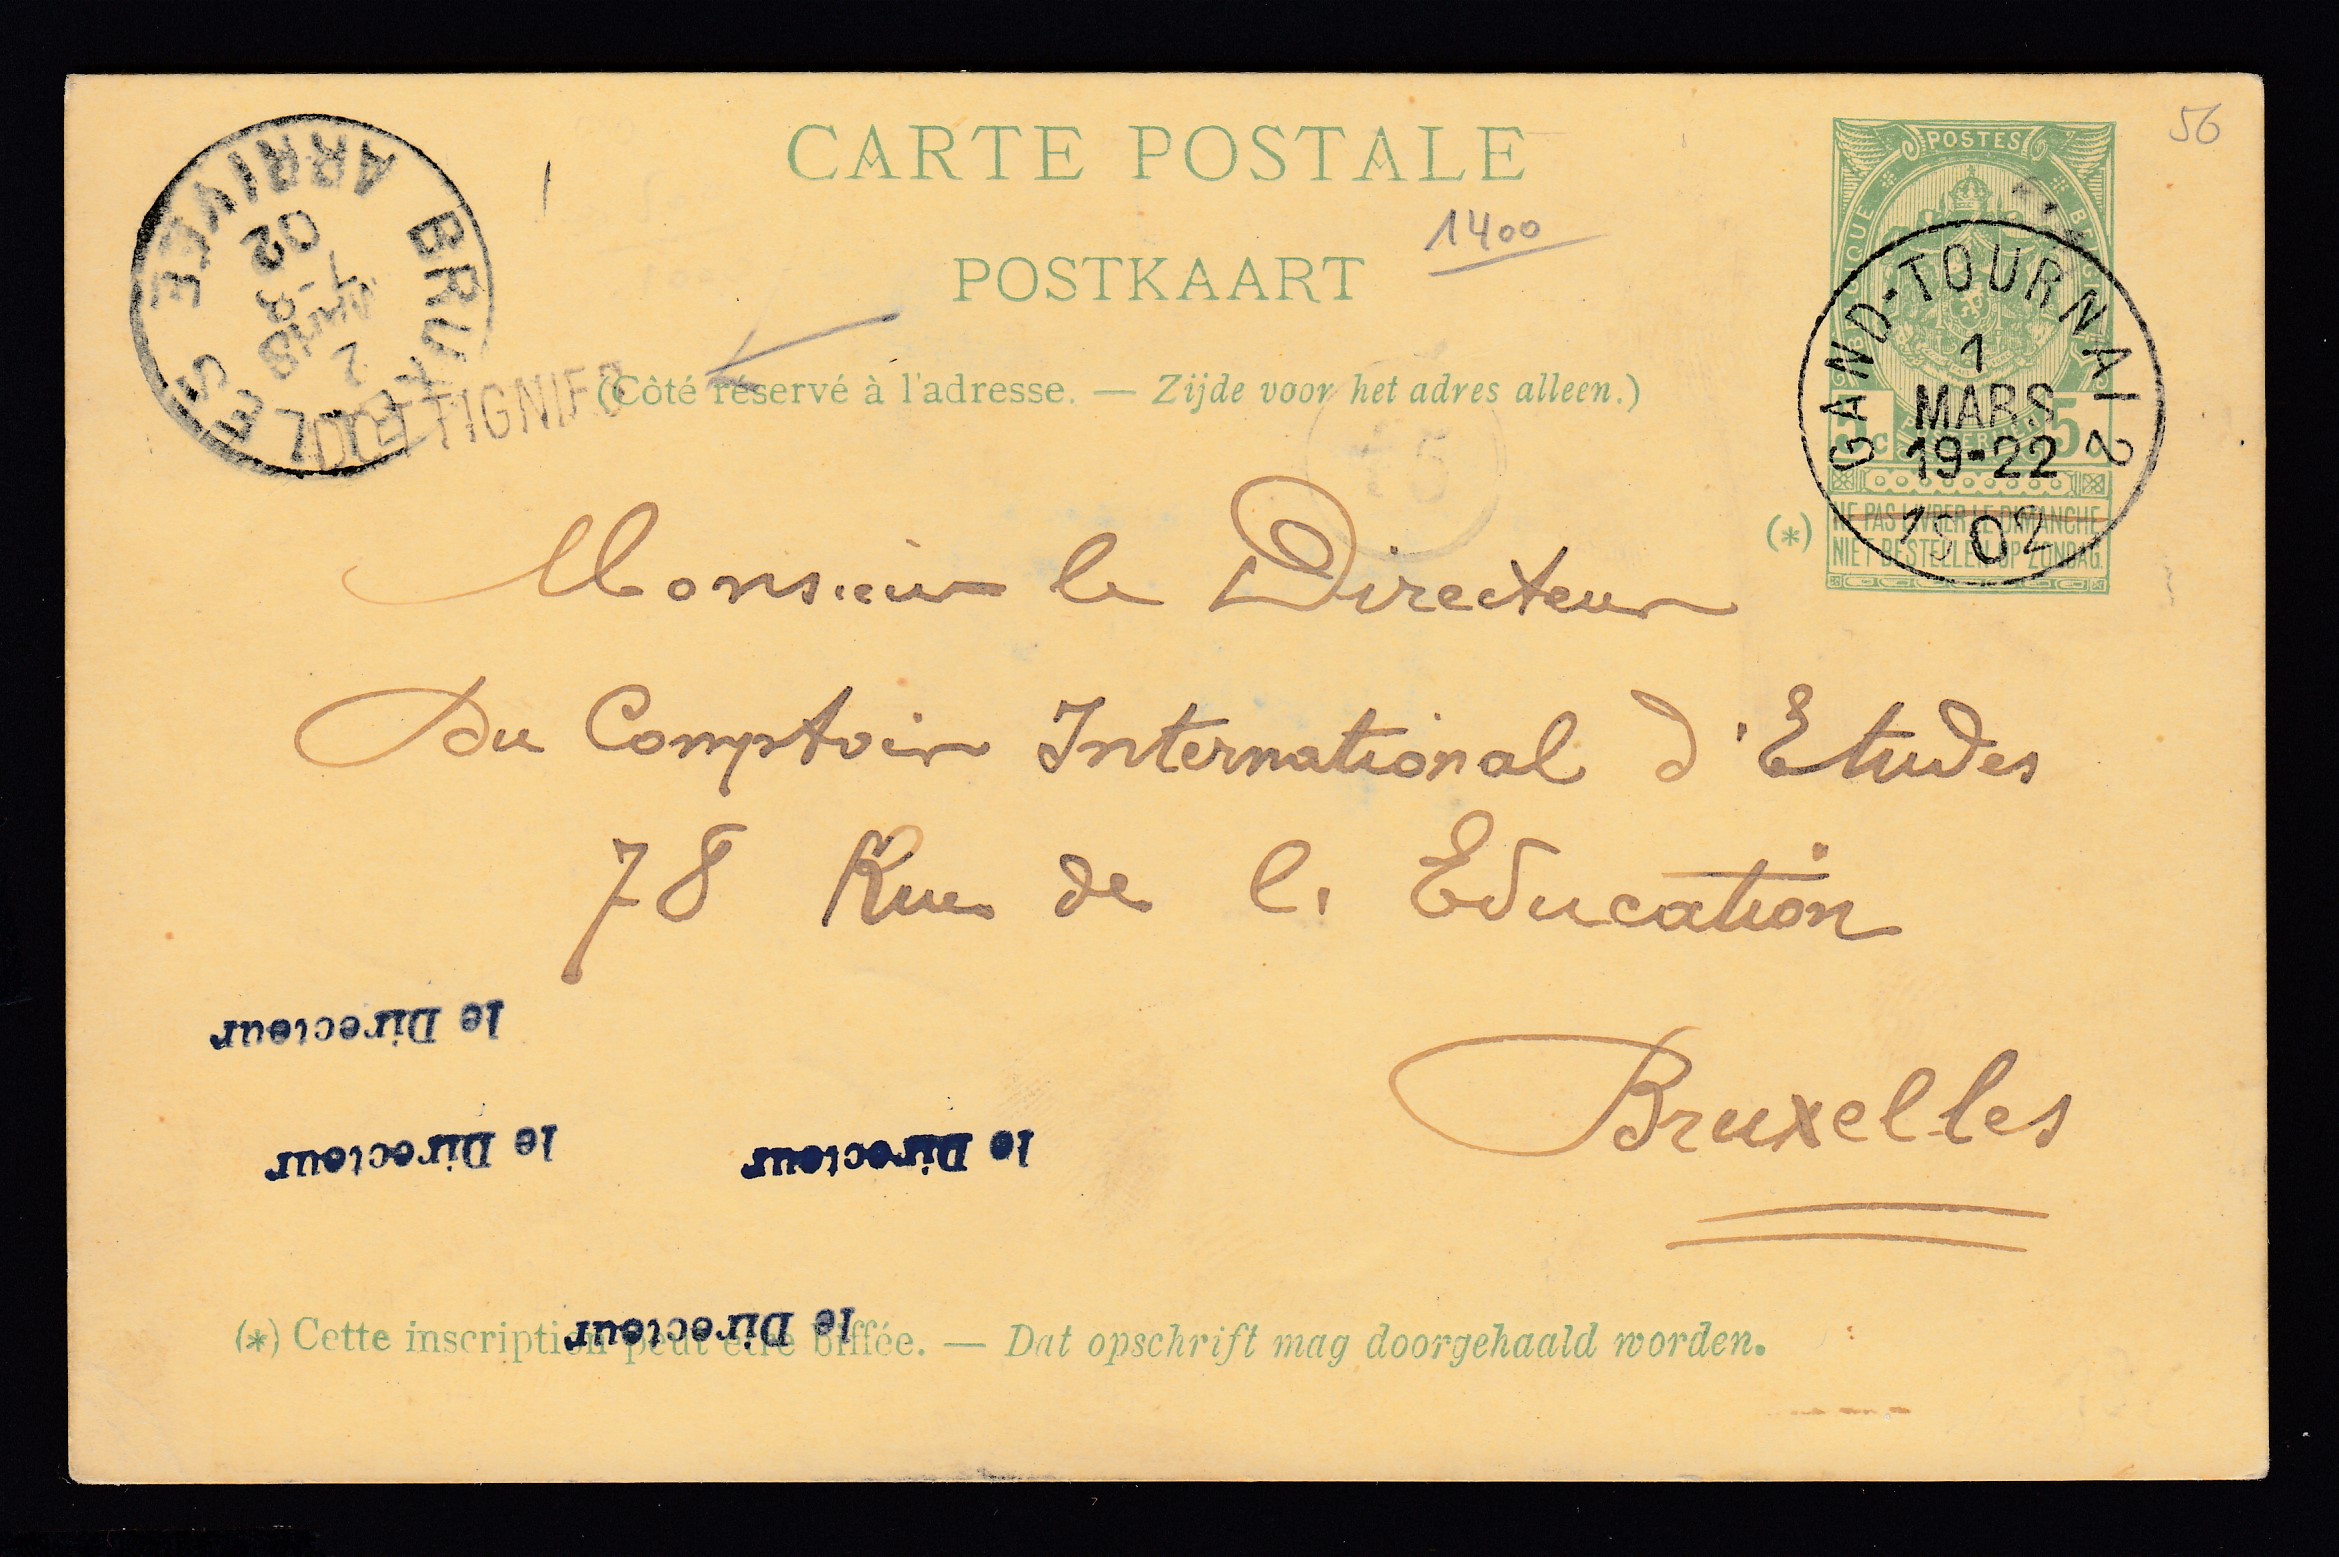 CARTE POSTALE
56
1400
POSTKAART
(Côté réservé à l'adresse. — Zijde voor het adres alleen.)
DOTTIGNIES
BRUXELLES
ARRIVÉE
2
MARS
02
POSTES
5
GAND-TOURNAI 2
1
MARS
19-22
1902
(*) NE PAS LIVRER LE DIMANCHE
NIET BESTELLEN OP ZONDAG.
Monsieur le Directeur
Du Comptoir International d'Etudes
78 Rue de l' Education
Bruxelles
le Directeur
le Directeur
le Directeur
le Directeur
(*) Cette inscription peut être biffée. — Dat opschrift mag doorgehaald worden.